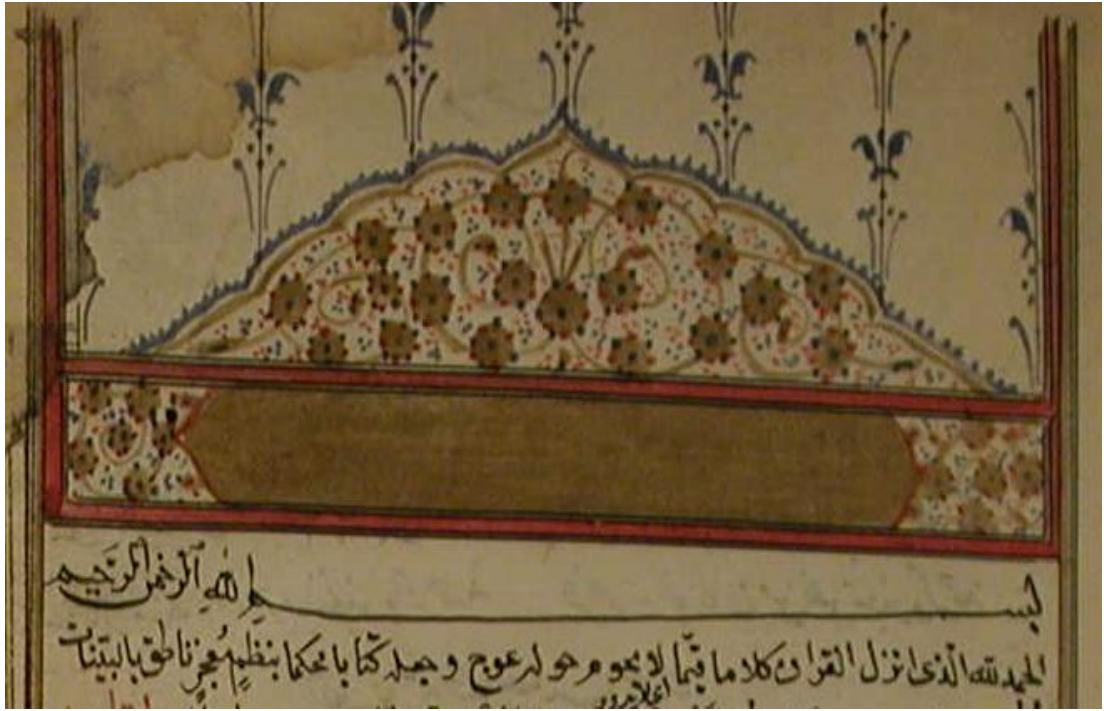 بسم الله الرحمن الرحيم
الحمد لله الذى انزل القران كلاما قيما لا يحوم حوله عوج وجعله كتابا محكما بنظم معجز ناطق بالبينات